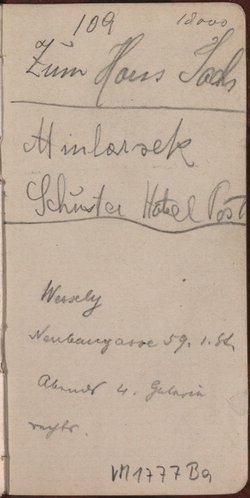 109 18000
Zum Hans Sachs
Minlarsek
Schuster Hotel Post
Wessely
Neubaugasse 59. 1. St.
Abends 4. Galerie
rechts.
VM 1777 Ba